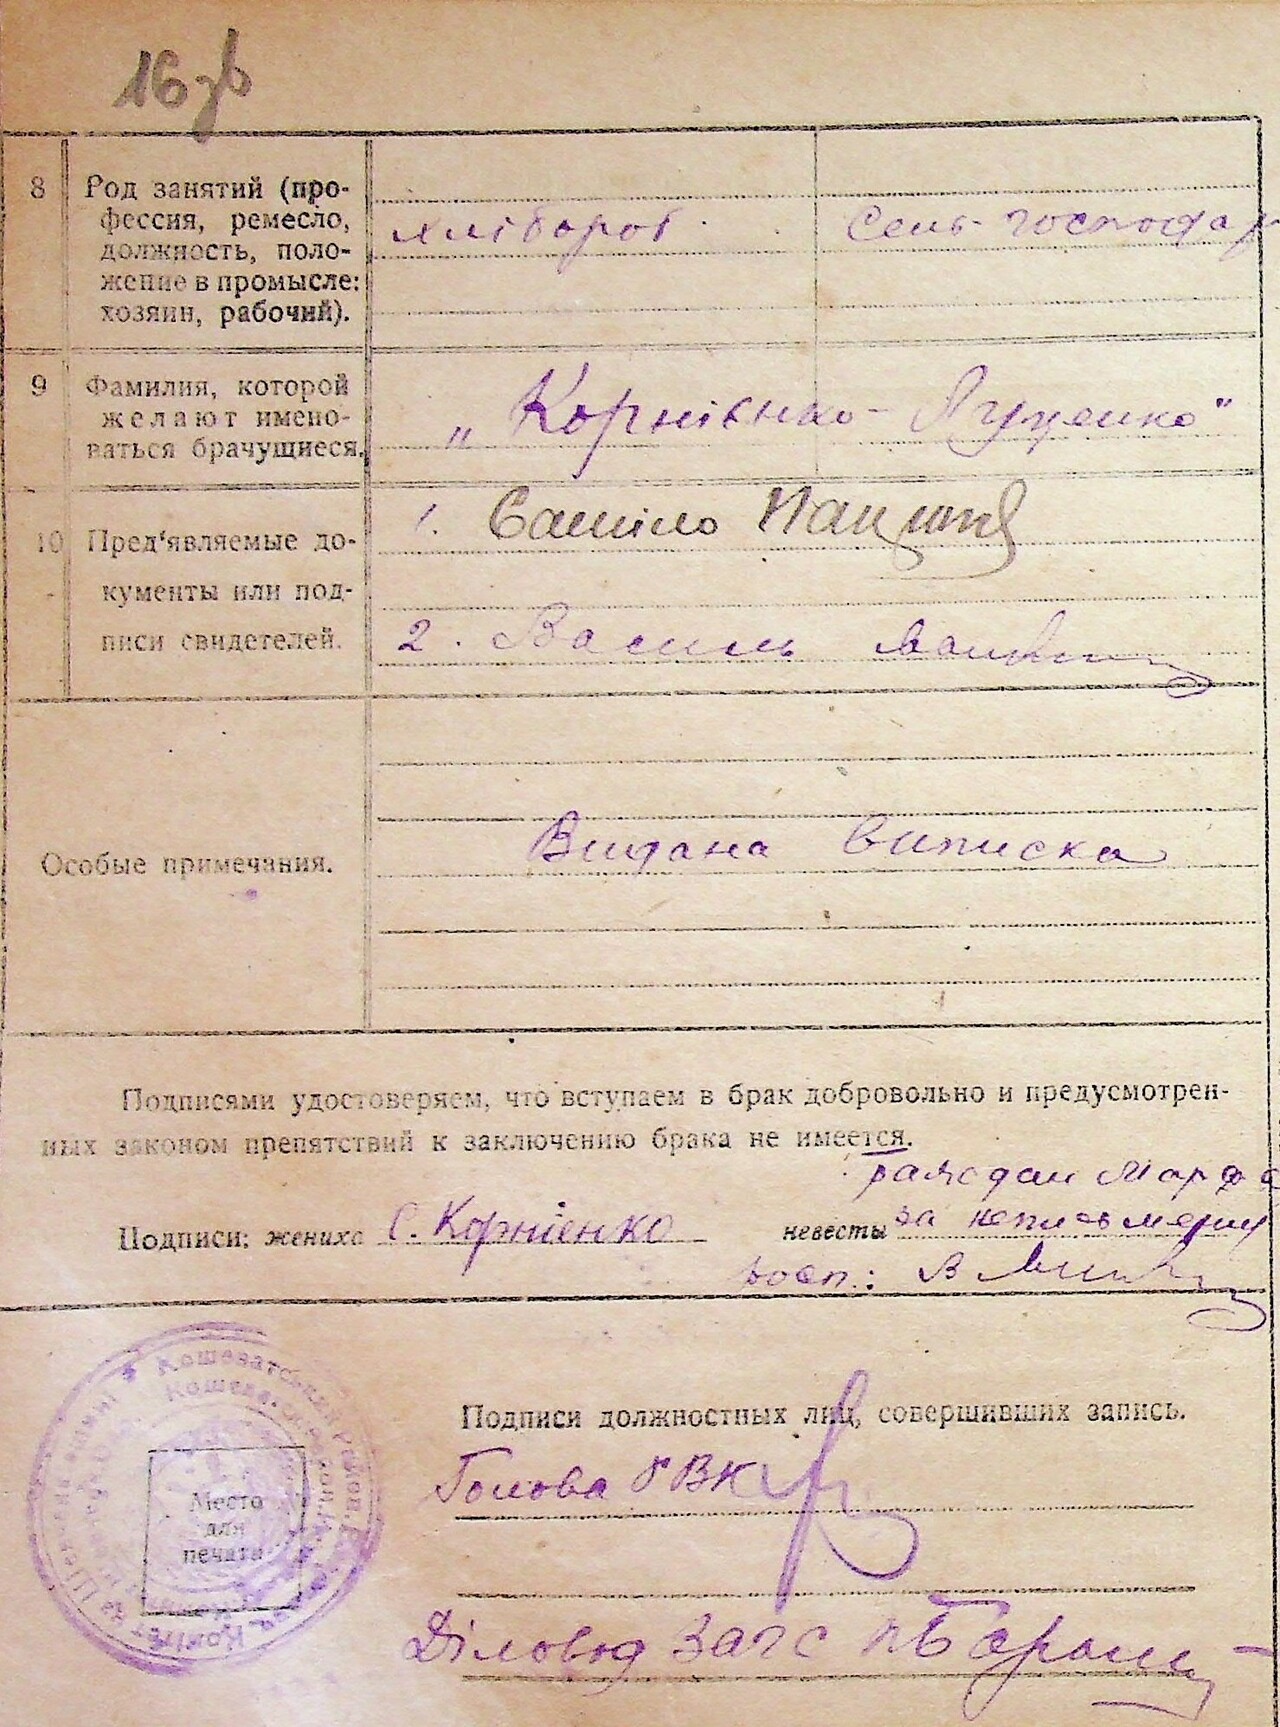 16 зв
8 Род занятий (про-
фессия, ремесло,
должность, поло-
жение в промысле:
хозяин, рабочий).
хлібороб
Сель-господар
9 Фамилия, которой
желают имено-
ваться брачущиеся.
„Корнієнко-
10 Пред'являемые до-
кументы или под-
писи свидетелей.
1. Самійло
2. Василь
Особые примечания.
Видана виписка
Подписями удостоверяем, что вступаем в брак добровольно и предусмотрен-
ных законом препятствий к заключению брака не имеется.
Марфа
Подписи: жениха С. Корнієнко невесты за неписьмен
В
Кошеватськ
Место
для
печати
Подписи должностных лиц, совершивших запись.
Голова РВК
Діловод Загс